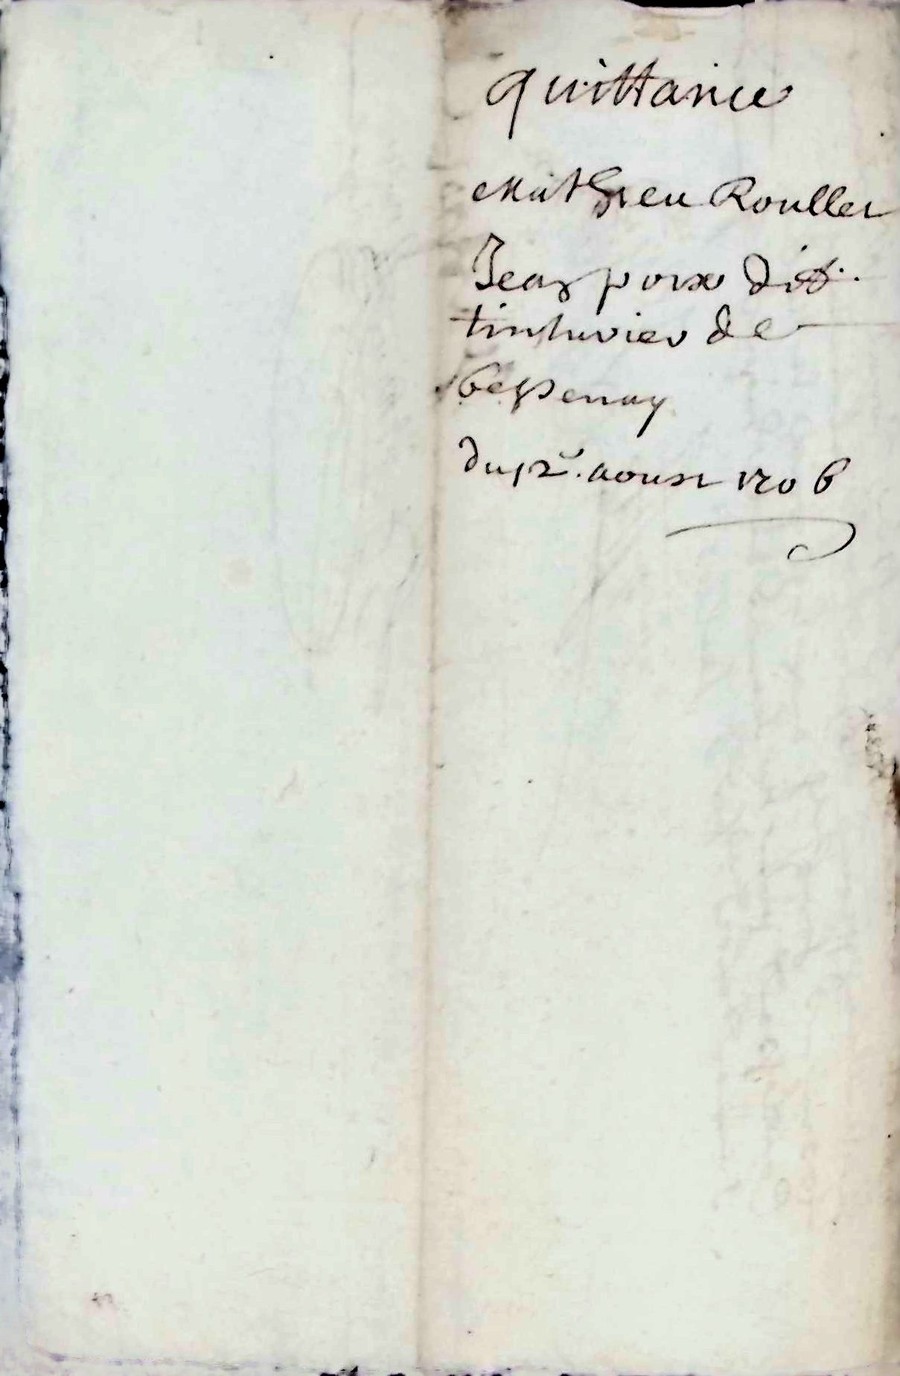 quittance
Mathieu Roullet
Jean poix ditt
tinturier de
bessenay
du 12e. aoust 1706